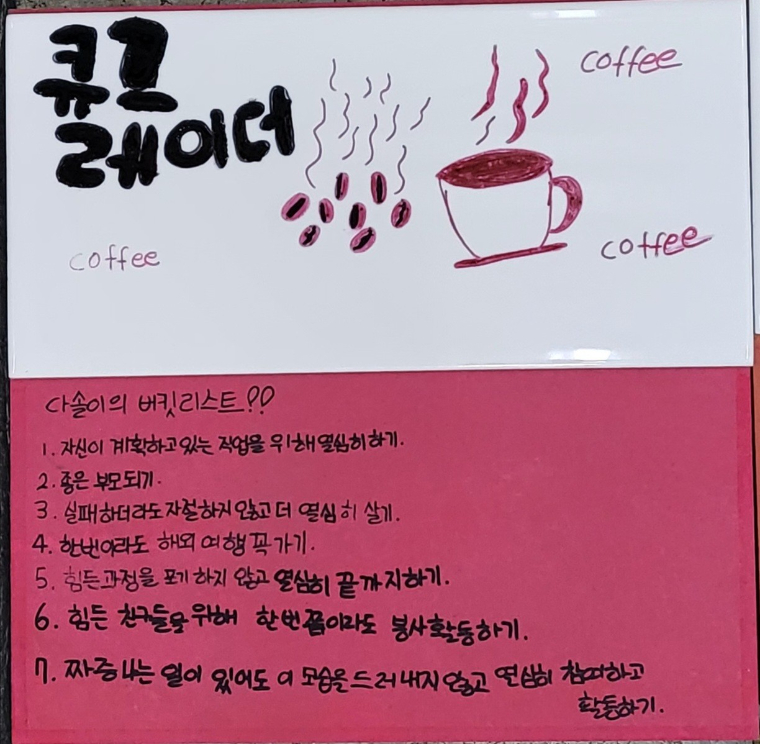 큐그
레이더
coffee
coffee
coffee
다솔이의 버킷리스트!?
1. 자신이 계획하고있는 직업을 위해 열심히하기.
2. 좋은 부모되기.
3. 실패하더라도 자절하지 않고 더 열심히 살기.
4. 한번이라도 해외 여행 꼭 가기.
5. 힘든과정을 포기하지 않고 열심히 끝까지하기.
6. 힘든 친구들을 위해 한번쯤이라도 봉사활동하기.
7. 짜증나는 일이 있어도 이 모습을 드러내지 않고 열심히 참여하고
활동하기.